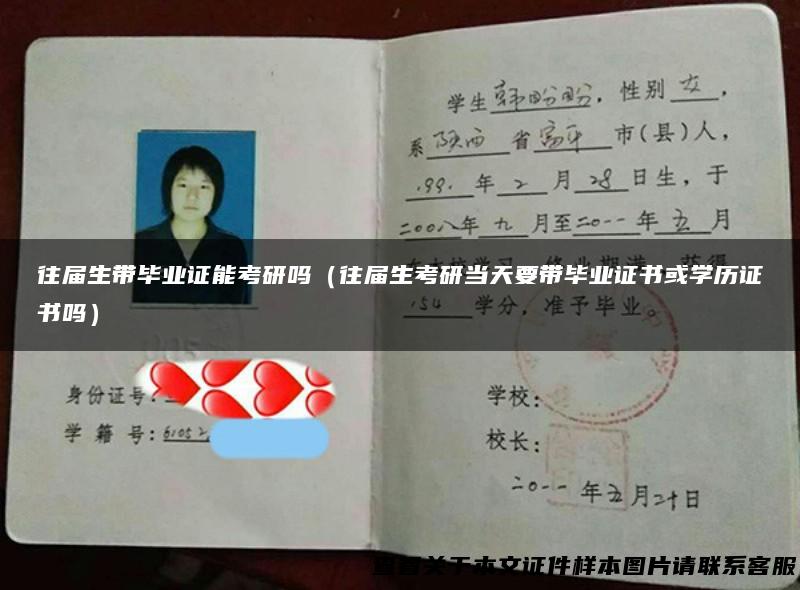 学生韩盼盼，性别女，
系陕西省富平市(县)人，
1991年2月28日生，于
二00八年九月至二0一一年五月
往届生带毕业证能考研吗（往届生考研当天要带毕业证书或学历证
书吗）
154学分，准予毕业。
身份证号：
学 籍 号：61052
学校：
校长：
二0一一年五月二十日
查看关于本文证件样本图片请联系客服